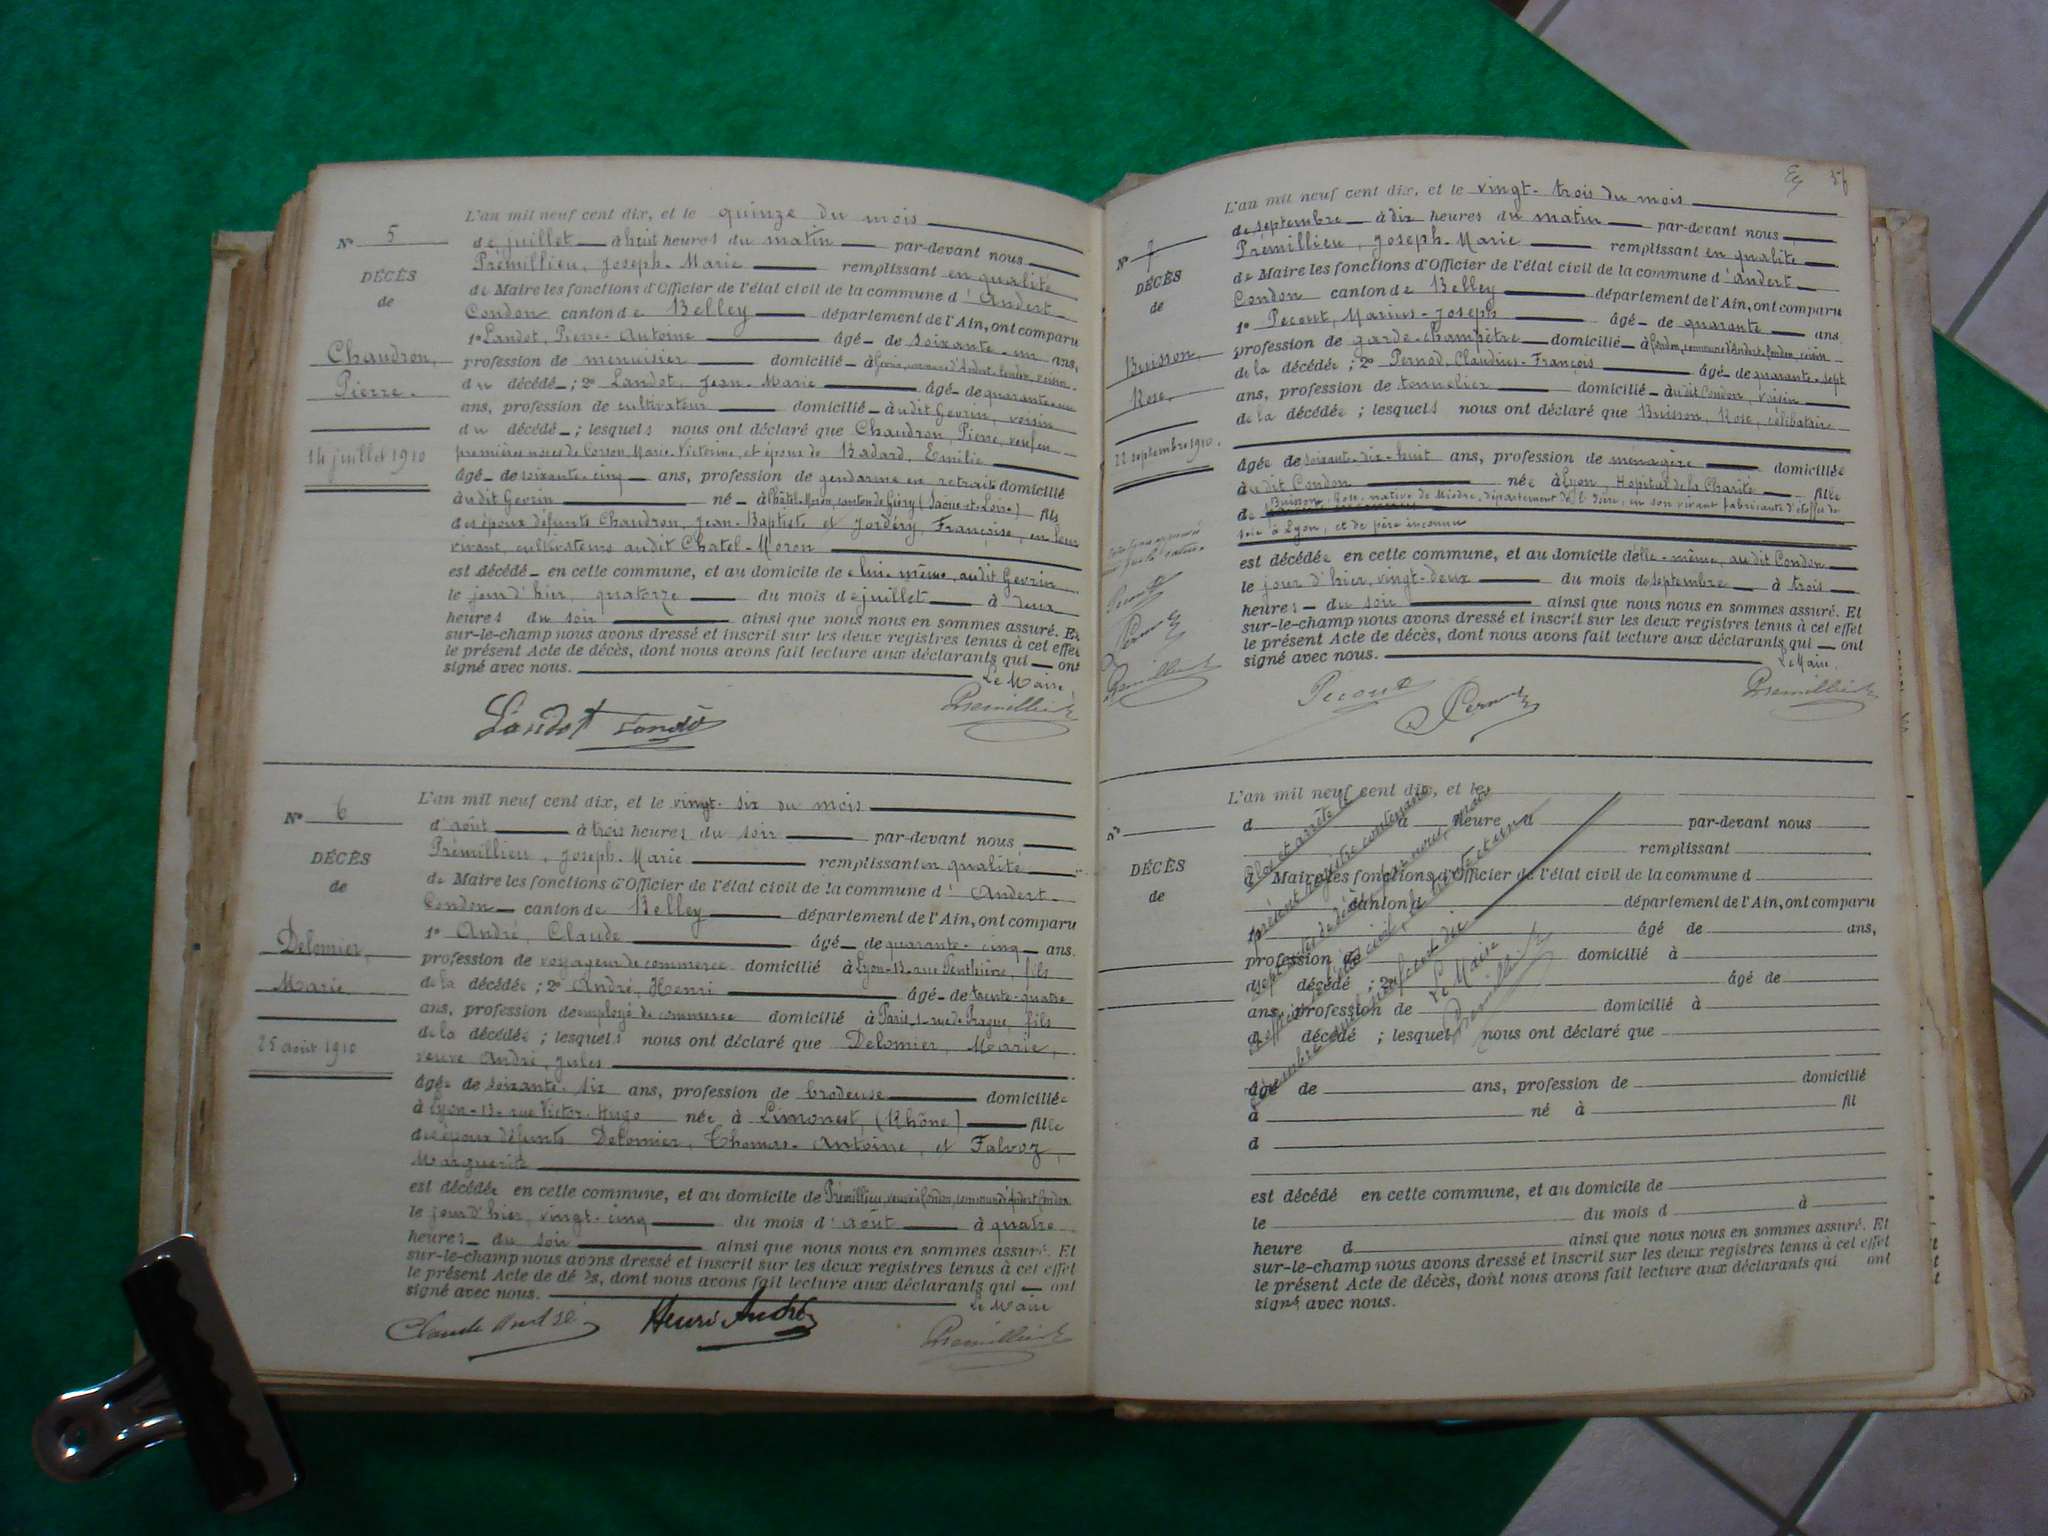 N° 5
DÉCÈS
de
Chaudron,
Pierre.
14 juillet 1910
L'an mil neuf cent dix, et le quinze du mois
de juillet à huit heures du matin par-devant nous
Prémillieu, Joseph-Marie remplissant en qualité
de Maire les fonctions d'Officier de l'état civil de la commune d'Andert-
Condon canton de Belley département de l'Ain, ont comparu
1° Landot, Pierre-Antoine âgé de soixante-un ans,
profession de menuisier domicilié à Gevrin, commune d'Andert-Condon, voisin
du décédé ; 2° Landot, Jean-Marie âgé de quarante-un
ans, profession de cultivateur domicilié audit Gevrin, voisin
du décédé ; lesquels nous ont déclaré que Chaudron, Pierre, veuf en
premières noces de Corson, Marie-Victorine, et époux de Badard, Emilie
âgé de soixante-cinq ans, profession de gendarme en retraite domicilié
audit Gevrin né à Châtel-Moron, canton de Givry (Saône-et-Loire) fils
des époux défunts Chaudron, Jean-Baptiste et Jordéry, Françoise, en leur
vivant, cultivateurs audit Chatel-Moron
est décédé en cette commune, et au domicile de lui-même, audit Gevrin
le jour d'hier, quatorze du mois de juillet à deux
heures du soir ainsi que nous nous en sommes assuré. Et
sur-le-champ nous avons dressé et inscrit sur les deux registres tenus à cet effet
le présent Acte de décès, dont nous avons fait lecture aux déclarants qui ont
signé avec nous.
Le Maire,
Landot Landot Prémillieu
N° 6
DÉCÈS
de
Delomier,
Marie
25 août 1910
L'an mil neuf cent dix, et le vingt-six du mois
d'août à trois heures du soir par-devant nous
Prémillieu, Joseph-Marie remplissant en qualité
de Maire les fonctions d'Officier de l'état civil de la commune d'Andert-
Condon canton de Belley département de l'Ain, ont comparu
1° André, Claude âgé de quarante-cinq ans,
profession de voyageur de commerce domicilié à Lyon-13-rue Penthièvre, fils
de la décédée ; 2° André, Henri âgé de trente-quatre
ans, profession de employé de commerce domicilié à Paris, 1-rue de Prague, fils
de la décédée ; lesquels nous ont déclaré que Delomier, Marie,
veuve André, Jules
âgée de soixante-six ans, profession de brodeuse domiciliée
à Lyon-13-rue Victor-Hugo née à Limonest, (Rhône) fille
des époux défunts Delomier, Thomas-Antoine, et Falvoz,
Marguerite
est décédée en cette commune, et au domicile de Prémillieu, commune d'Andert-Condon
le jour d'hier, vingt-cinq du mois d'août à quatre
heures du soir ainsi que nous nous en sommes assuré. Et
sur-le-champ nous avons dressé et inscrit sur les deux registres tenus à cet effet
le présent Acte de décès, dont nous avons fait lecture aux déclarants qui ont
signé avec nous.
Le Maire
Claude André Henri André Prémillieu
N° 7
DÉCÈS
de
Buisson,
Rose,
22 septembre 1910.
Pecout
Pernod
Prémillieu
L'an mil neuf cent dix, et le vingt-trois du mois
de septembre à dix heures du matin par-devant nous
Prémillieu, Joseph-Marie remplissant en qualité
de Maire les fonctions d'Officier de l'état civil de la commune d'Andert-
Condon canton de Belley département de l'Ain, ont comparu
1° Pecout, Marius-Joseph âgé de quarante ans,
profession de garde-champêtre domicilié à Condon, commune d'Andert-Condon, voisin
de la décédée ; 2° Pernod, Claudius-François âgé de quarante-sept
ans, profession de tonnelier domicilié audit Condon, voisin
de la décédée ; lesquels nous ont déclaré que Buisson, Rose, célibataire
âgée de soixante-dix-huit ans, profession de ménagère domiciliée
audit Condon née à Lyon, Hopital de la Charité fille
de Buisson, Rose, native de département de l'Isère, en son vivant fabricante d'étoffes de
soie à Lyon, et de père inconnu
est décédée en cette commune, et au domicile d'elle-même, audit Condon
le jour d'hier, vingt-deux du mois de septembre à trois
heures du soir ainsi que nous nous en sommes assuré. Et
sur-le-champ nous avons dressé et inscrit sur les deux registres tenus à cet effet
le présent Acte de décès, dont nous avons fait lecture aux déclarants qui ont
signé avec nous.
Le Maire,
Pecout Pernod Prémillieu
N°
DÉCÈS
de
L'an mil neuf cent dix, et le
d à heure d par-devant nous
remplissant
d Maire les fonctions d'Officier de l'état civil de la commune d
canton d département de l'Ain, ont comparu
1° âgé de ans,
profession de domicilié à
d décédé ; 2° âgé de
ans, profession de domicilié à
d décédé ; lesquel nous ont déclaré que
âgé de ans, profession de domicilié
à né à fil
d
est décédé en cette commune, et au domicile de
le du mois d à
heure d ainsi que nous nous en sommes assuré. Et
sur-le-champ nous avons dressé et inscrit sur les deux registres tenus à cet effet
le présent Acte de décès, dont nous avons fait lecture aux déclarants qui ont
signé avec nous.
Clos et arrêté le
présent registre contenant
sept actes de décès par nous, Maire
officier de l'état civil, le trente et un
décembre mil neuf cent dix
Le Maire
Prémillieu